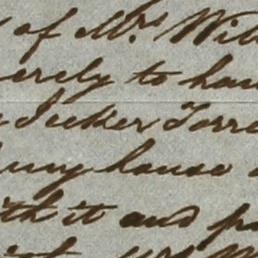 of Mrs Wil
erely to han
Tucker Torre
my house
ith it and p